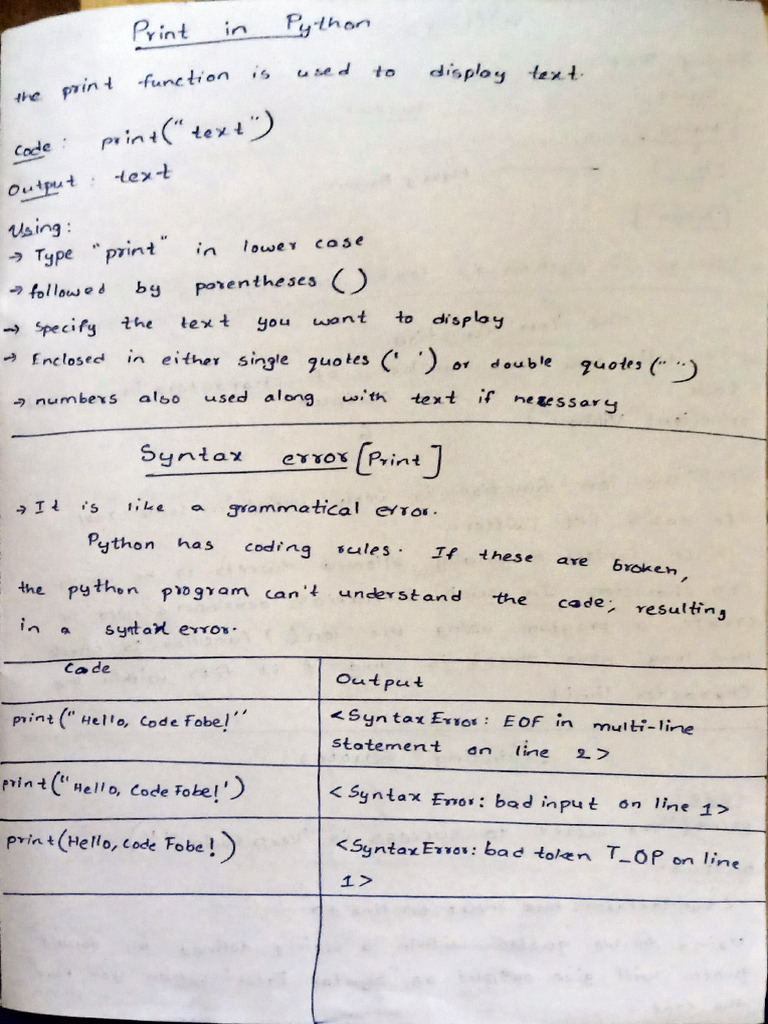 Print in Python
the print function is used to display text.
Code: print("text")
Output: text
Using:
→ Type "print" in lower case
→ followed by parentheses ()
→ Specify the text you want to display
→ Enclosed in either single quotes (' ') or double quotes (" ")
→ numbers also used along with text if necessary
Syntax error [Print]
→ It is like a grammatical error.
Python has coding rules. If these are broken,
the python program can't understand the code; resulting
in a syntax error.
Code
Output
print("Hello, Code Fobe!"
<Syntax Error: EOF in multi-line
statement on line 2>
print("Hello, Code Fobe!')
<Syntax Error: bad input on line 1>
print(Hello, Code Fobe!)
<Syntax Error: bad token T_OP on line
1>